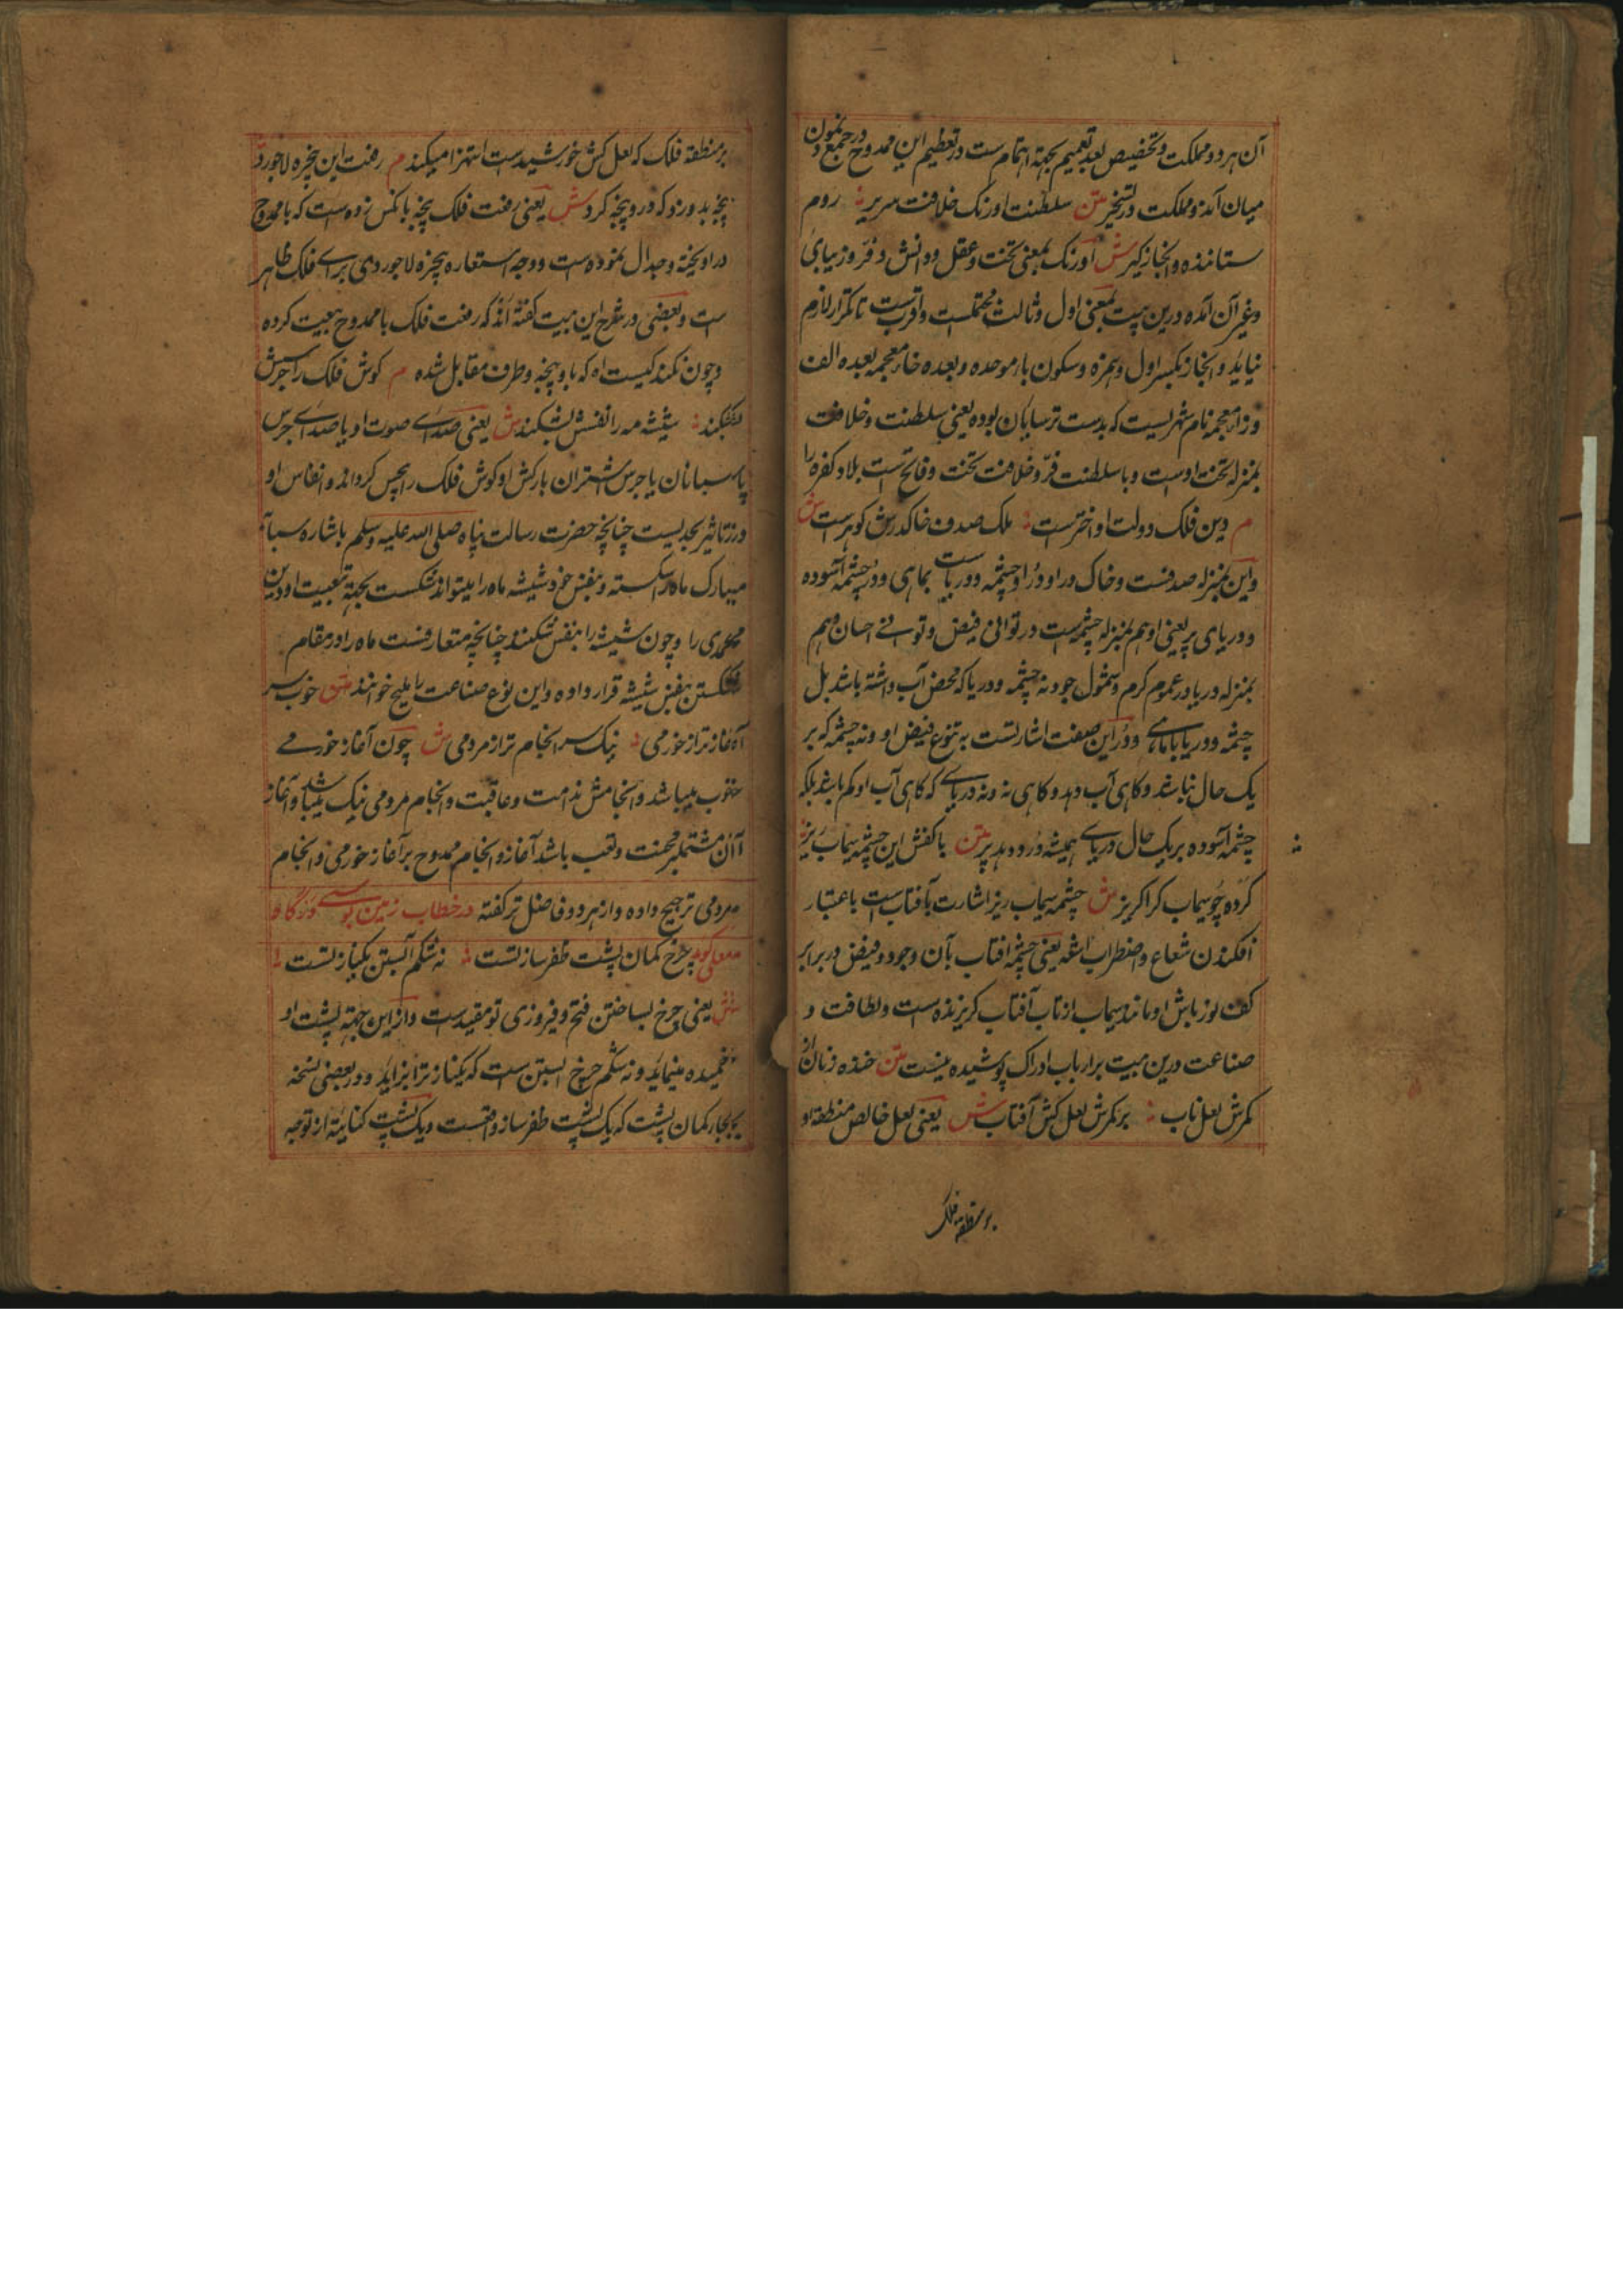 آن هر دو مملکت و تخصیص بعد تعمیم بجهة اهتمام ست در تعظیم این ممدوح در جمع نمودن
میان آنرو مملکت در تسخیر متن سلطنت اورنک خلافت سریر روم
ستاننده و ابخازکیر ش اورنک بمعنی تخت و عقل و دانش و فر و زیبایی
و غیر آن آمده درین بیت بمعنی اول و ثالث محتملست و اقربست تا تکرار لازم
نیاید و ابخاز بکسر اول و همزه و سکون باء موحده و بعده خاء معجمه بعده الف
و زاء معجمه نام شهریست که بدست ترسایان بوده یعنی سلطنت و خلافت
بمنزله تخت اوست و با سلطنت فر و خلافت تخت و فاتح ست بلاد کفره را
م دین فلک دولت او اخترست ملک صدف خاک درش کوهرست ش
و این بمنزله صدفست و خاک در او در او چشمه و دریاست بماهی و در چشمه آسوده
و دریای پر یعنی او هم بمنزله چشمه ست در توالی فیض و توالی احسان و هم
بمنزله دریا در عموم کرم و شمول جود نه چشمه و دریا که محض آب داشته باشد بل
چشمه و دریا باماهی و در این صفت اشارتست به تنوع فیض او و نه چشمه که بر
یک حال نباشد و کاهی آب دهد و کاهی نه و نه دریای که کاهی آب او کم باشد بلکه
چشمه آسوده بر یک حال دریای همیشه در و دهد پر متن با کفش این چشمه سیماب ریز
کرده چو سیماب کرا کریز ش چشمه سیماب ریز اشارت بآفتاب است باعتبار
افکندن شعاع و اضطراب اشعه یعنی چشمه افتاب بآن وجود و فیض در برابر
کف نورپاش او مانند سیماب از تاب آفتاب کریزنده است و لطافت و
صناعت درین بیت بر ارباب ادراک پوشیده نیست متن خنده زنان از
کمرش لعل ناب بر کمرش لعل کش آفتاب ش یعنی لعل خالص منطقه او
بر منطقه فلک
بر منطقه فلک که لعل کش خورشیدست استهزا میکند م رفعت این پنجره لاجورد
پنجه بدو زد که درو پنجه کرد ش یعنی رفعت فلک پنجه با کس زده است که با ممدوح
در اویخته و جدال نموده است و وجه استعاره پنجره لاجوردی برای فلک ظاهر
ست و بعضی در شرح این بیت کفته اند که رفعت فلک با ممدوح بیعت کرده
و چون نکند کیست اه که با او پنجه و طرف مقابل شده م کوش فلک را جرسش
بشکند شیشه مه را نفسش بشکند ش یعنی صدای صوت او یا صدای جرس
پاسبانان یا جرس اشتران بارکش او کوش فلک را بیحس کرداند و انفاس او
در تاثیر بحدیست چنانچه حضرت رسالت پناه صلی الله علیه وسلم باشاره سبابه
مبارک ماه را شکسته و بنفس خود شیشه ماه را میتواند شکست بجهة تبعیت او دین
محمدی را و چون شیشه را بنفس شکنند چنانچه متعارفست ماه را در مقام
شکستن بنفس شیشه قرار داده و این نوع صناعت را ملیح خوانند متن خوب سر
آغاز تر از خرمی نیک سر انجام تر از مردمی ش چون آغاز خورمی
خوب میباشد و انجامش ندامت و عاقبت و انجام مردمی نیک میباشد و آغاز
آن مشتمل بر محنت و تعب باشد آغاز و انجام ممدوح بر آغاز خورمی و انجام
مردمی ترجیح داده و از هر دو فاضل تر کفته در خطاب زمین بوسی درگاه
معلی کوید چرخ کمان پشت ظفر ساز تست نه شکم آبستن یکناز تست
ش یعنی چرخ بساختن فتح و فیروزی تو مقیدست و از این جهة پشت او
خمیده مینماید و نه شکم چرخ آبستن است که یکناز ترا بزاید و در بعضی نسخه
بجای کمان پشت که یک پشت ظفر ساز واقعست و یک پشت کنایة از توجه